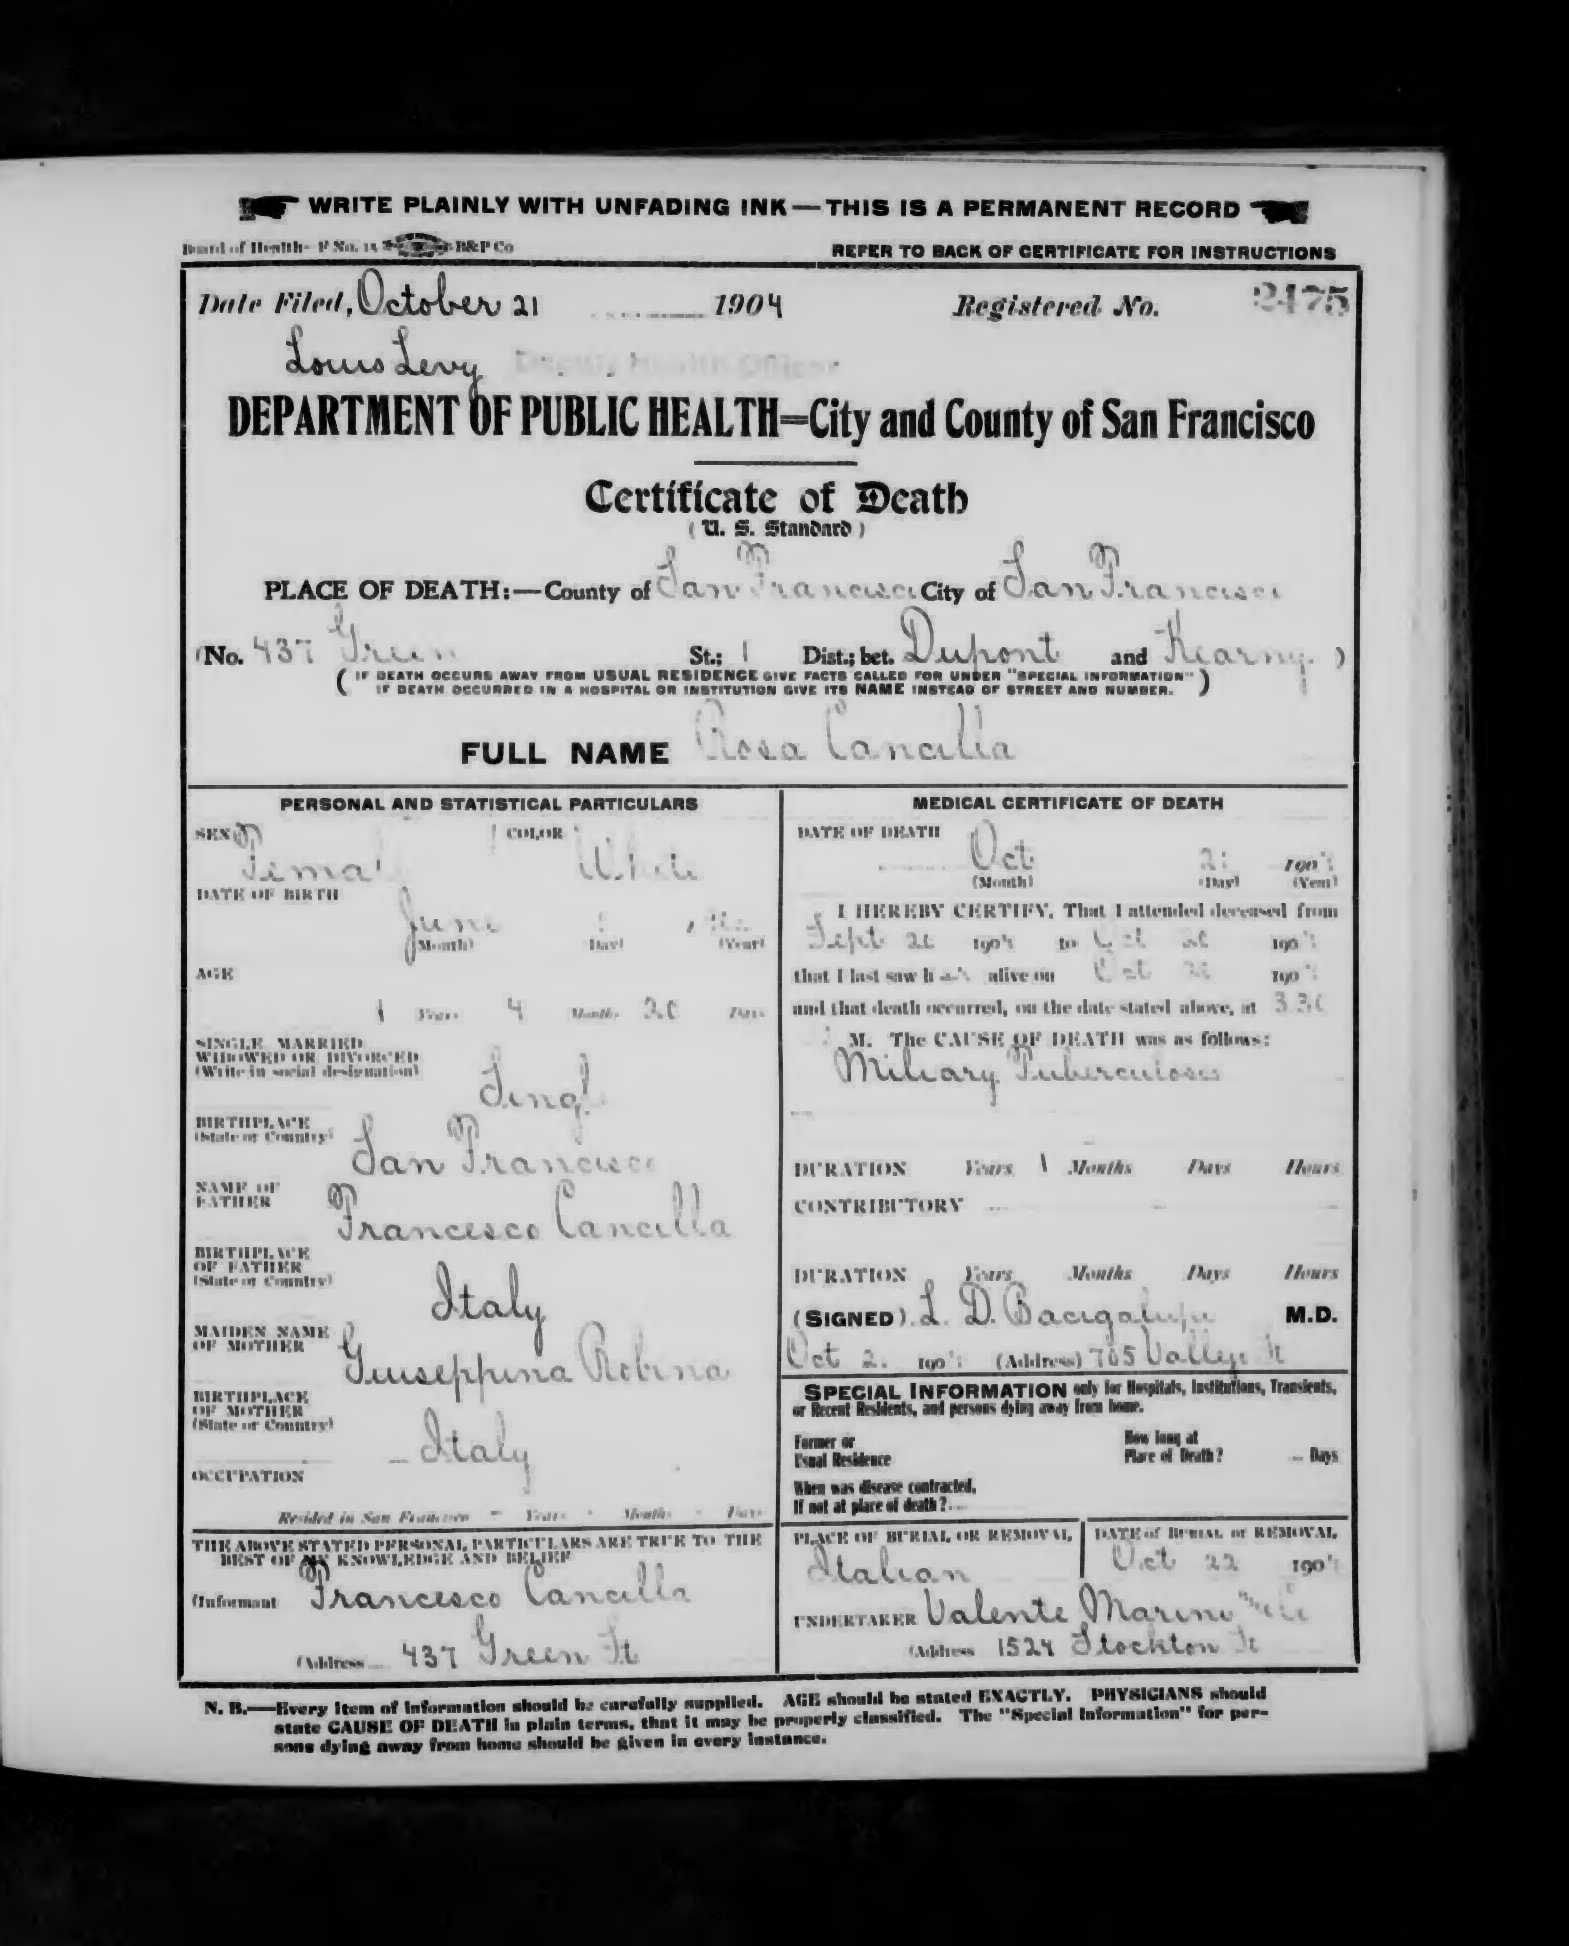 WRITE PLAINLY WITH UNFADING INK—THIS IS A PERMANENT RECORD
Board of Health—F No. 15 B&P Co
REFER TO BACK OF CERTIFICATE FOR INSTRUCTIONS
Date Filed, October 21 1904 Registered No. 2475
Louis Levy Deputy Health Officer
DEPARTMENT OF PUBLIC HEALTH=City and County of San Francisco
Certificate of Death
(U. S. Standard)
PLACE OF DEATH:—County of San Francisco City of San Francisco
(No. 437 Green St.; 1 Dist.; bet. Dupont and Kearny.)
(IF DEATH OCCURS AWAY FROM USUAL RESIDENCE GIVE FACTS CALLED FOR UNDER "SPECIAL INFORMATION"
IF DEATH OCCURRED IN A HOSPITAL OR INSTITUTION GIVE ITS NAME INSTEAD OF STREET AND NUMBER.)
FULL NAME Rosa Cancilla
PERSONAL AND STATISTICAL PARTICULARS
SEX Female COLOR White
DATE OF BIRTH
June
(Month) (Day) (Year)
AGE
1 Years 4 Months 20 Days
SINGLE, MARRIED,
WIDOWED OR DIVORCED
(Write in social designation)
Single
BIRTHPLACE
(State or Country)
San Francisco
NAME OF
FATHER
Francesco Cancilla
BIRTHPLACE
OF FATHER
(State or Country)
Italy
MAIDEN NAME
OF MOTHER
Giuseppina Robina
BIRTHPLACE
OF MOTHER
(State or Country)
Italy
OCCUPATION
Resided in San Francisco - Years - Months - Days
THE ABOVE STATED PERSONAL PARTICULARS ARE TRUE TO THE
BEST OF MY KNOWLEDGE AND BELIEF
(Informant Francesco Cancilla
(Address 437 Green St
MEDICAL CERTIFICATE OF DEATH
DATE OF DEATH
Oct 21 1904
(Month) (Day) (Year)
I HEREBY CERTIFY, That I attended deceased from
Sept 20 1904 to Oct 20 1904
that I last saw h alive on Oct 20 1904
and that death occurred, on the date stated above, at 3.30
M. The CAUSE OF DEATH was as follows:
Miliary Tuberculosis
DURATION Years 1 Months Days Hours
CONTRIBUTORY
DURATION Years Months Days Hours
(SIGNED) L. D. Bacigalupi M.D.
Oct 21 1904 (Address) 705 Vallejo St
SPECIAL INFORMATION only for Hospitals, Institutions, Transients,
or Recent Residents, and persons dying away from home.
Former or
Usual Residence
How long at
Place of Death? Days
When was disease contracted,
If not at place of death?
PLACE OF BURIAL OR REMOVAL
Italian
DATE of BURIAL or REMOVAL
Oct 22 1904
UNDERTAKER Valente Marini
(Address 1524 Stockton St
N. B.—Every item of information should be carefully supplied. AGE should be stated EXACTLY. PHYSICIANS should
state CAUSE OF DEATH in plain terms, that it may be properly classified. The "Special Information" for per-
sons dying away from home should be given in every instance.